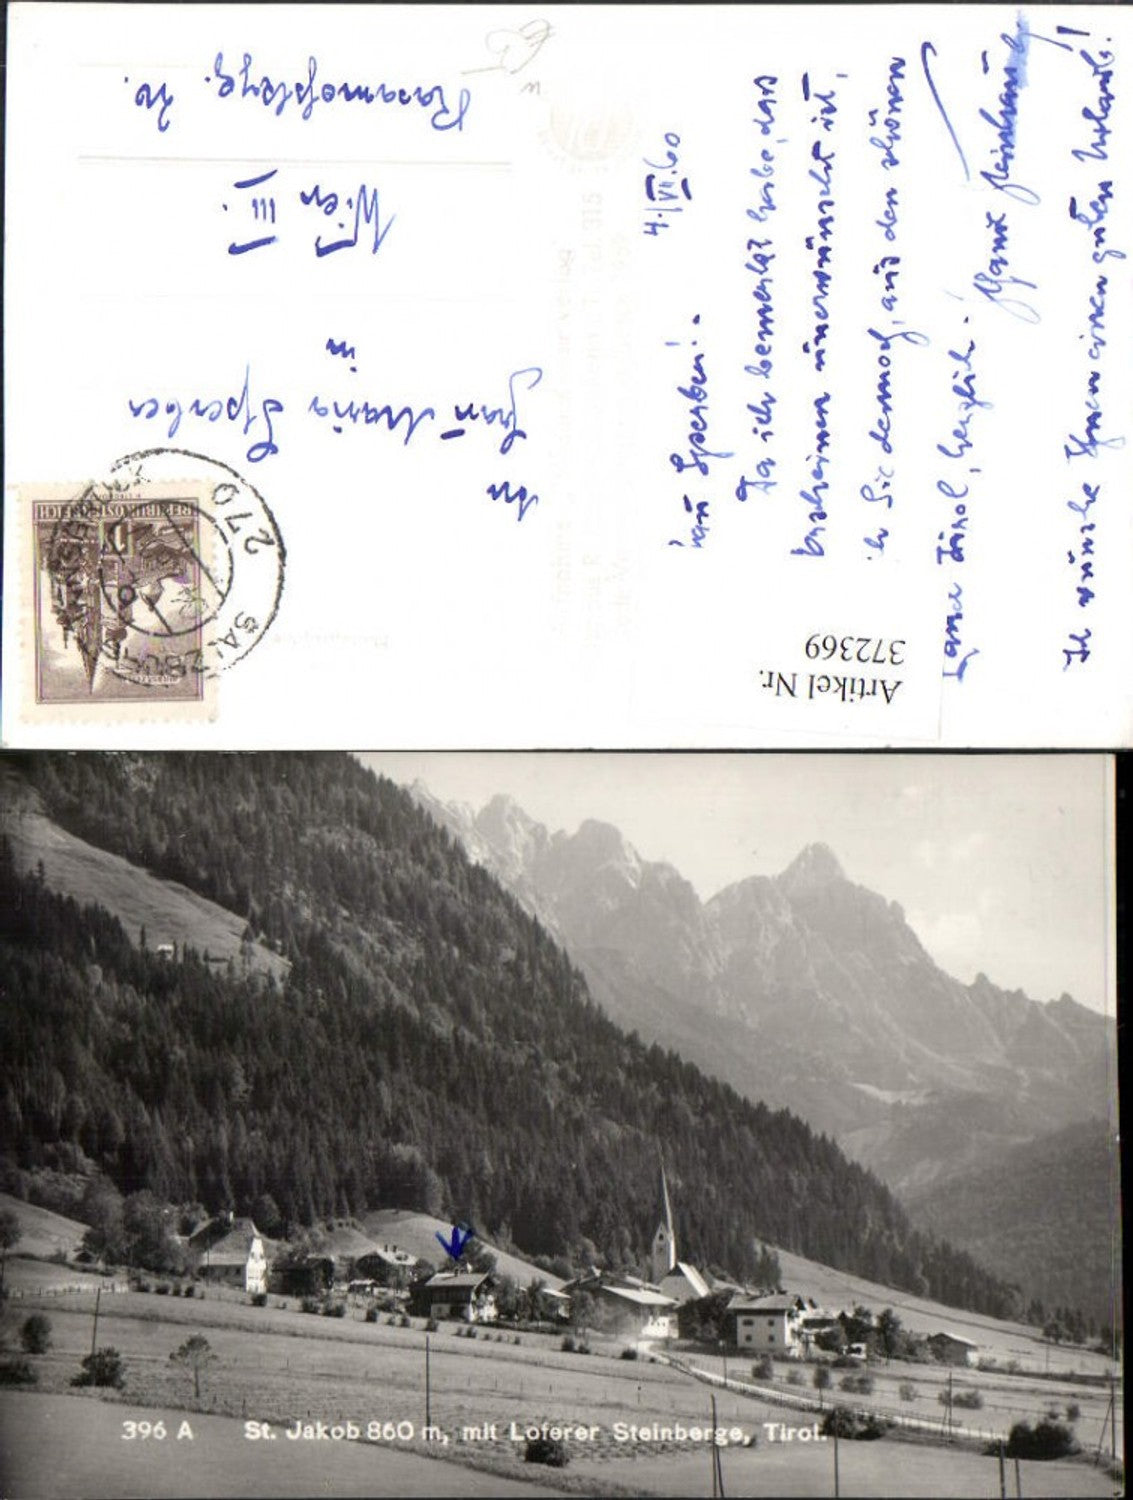 4./VII.60
Frau Sperber! -
Da ich bemerkt habe, das
erscheinen unerwünscht ist,
ich Sie dennoch, aus dem schönen
Land Tirol, herzlich. -
Hans
Ich wünsche Ihnen einen guten Urlaub!
An
Frau Maria Sperber
in
Wien III.
Rasumofskyg.
REPUBLIK ÖSTERREICH
270 SALZBURG
Artikel Nr.
372369
396 A St. Jakob 860 m, mit Loferer Steinberge, Tirol.